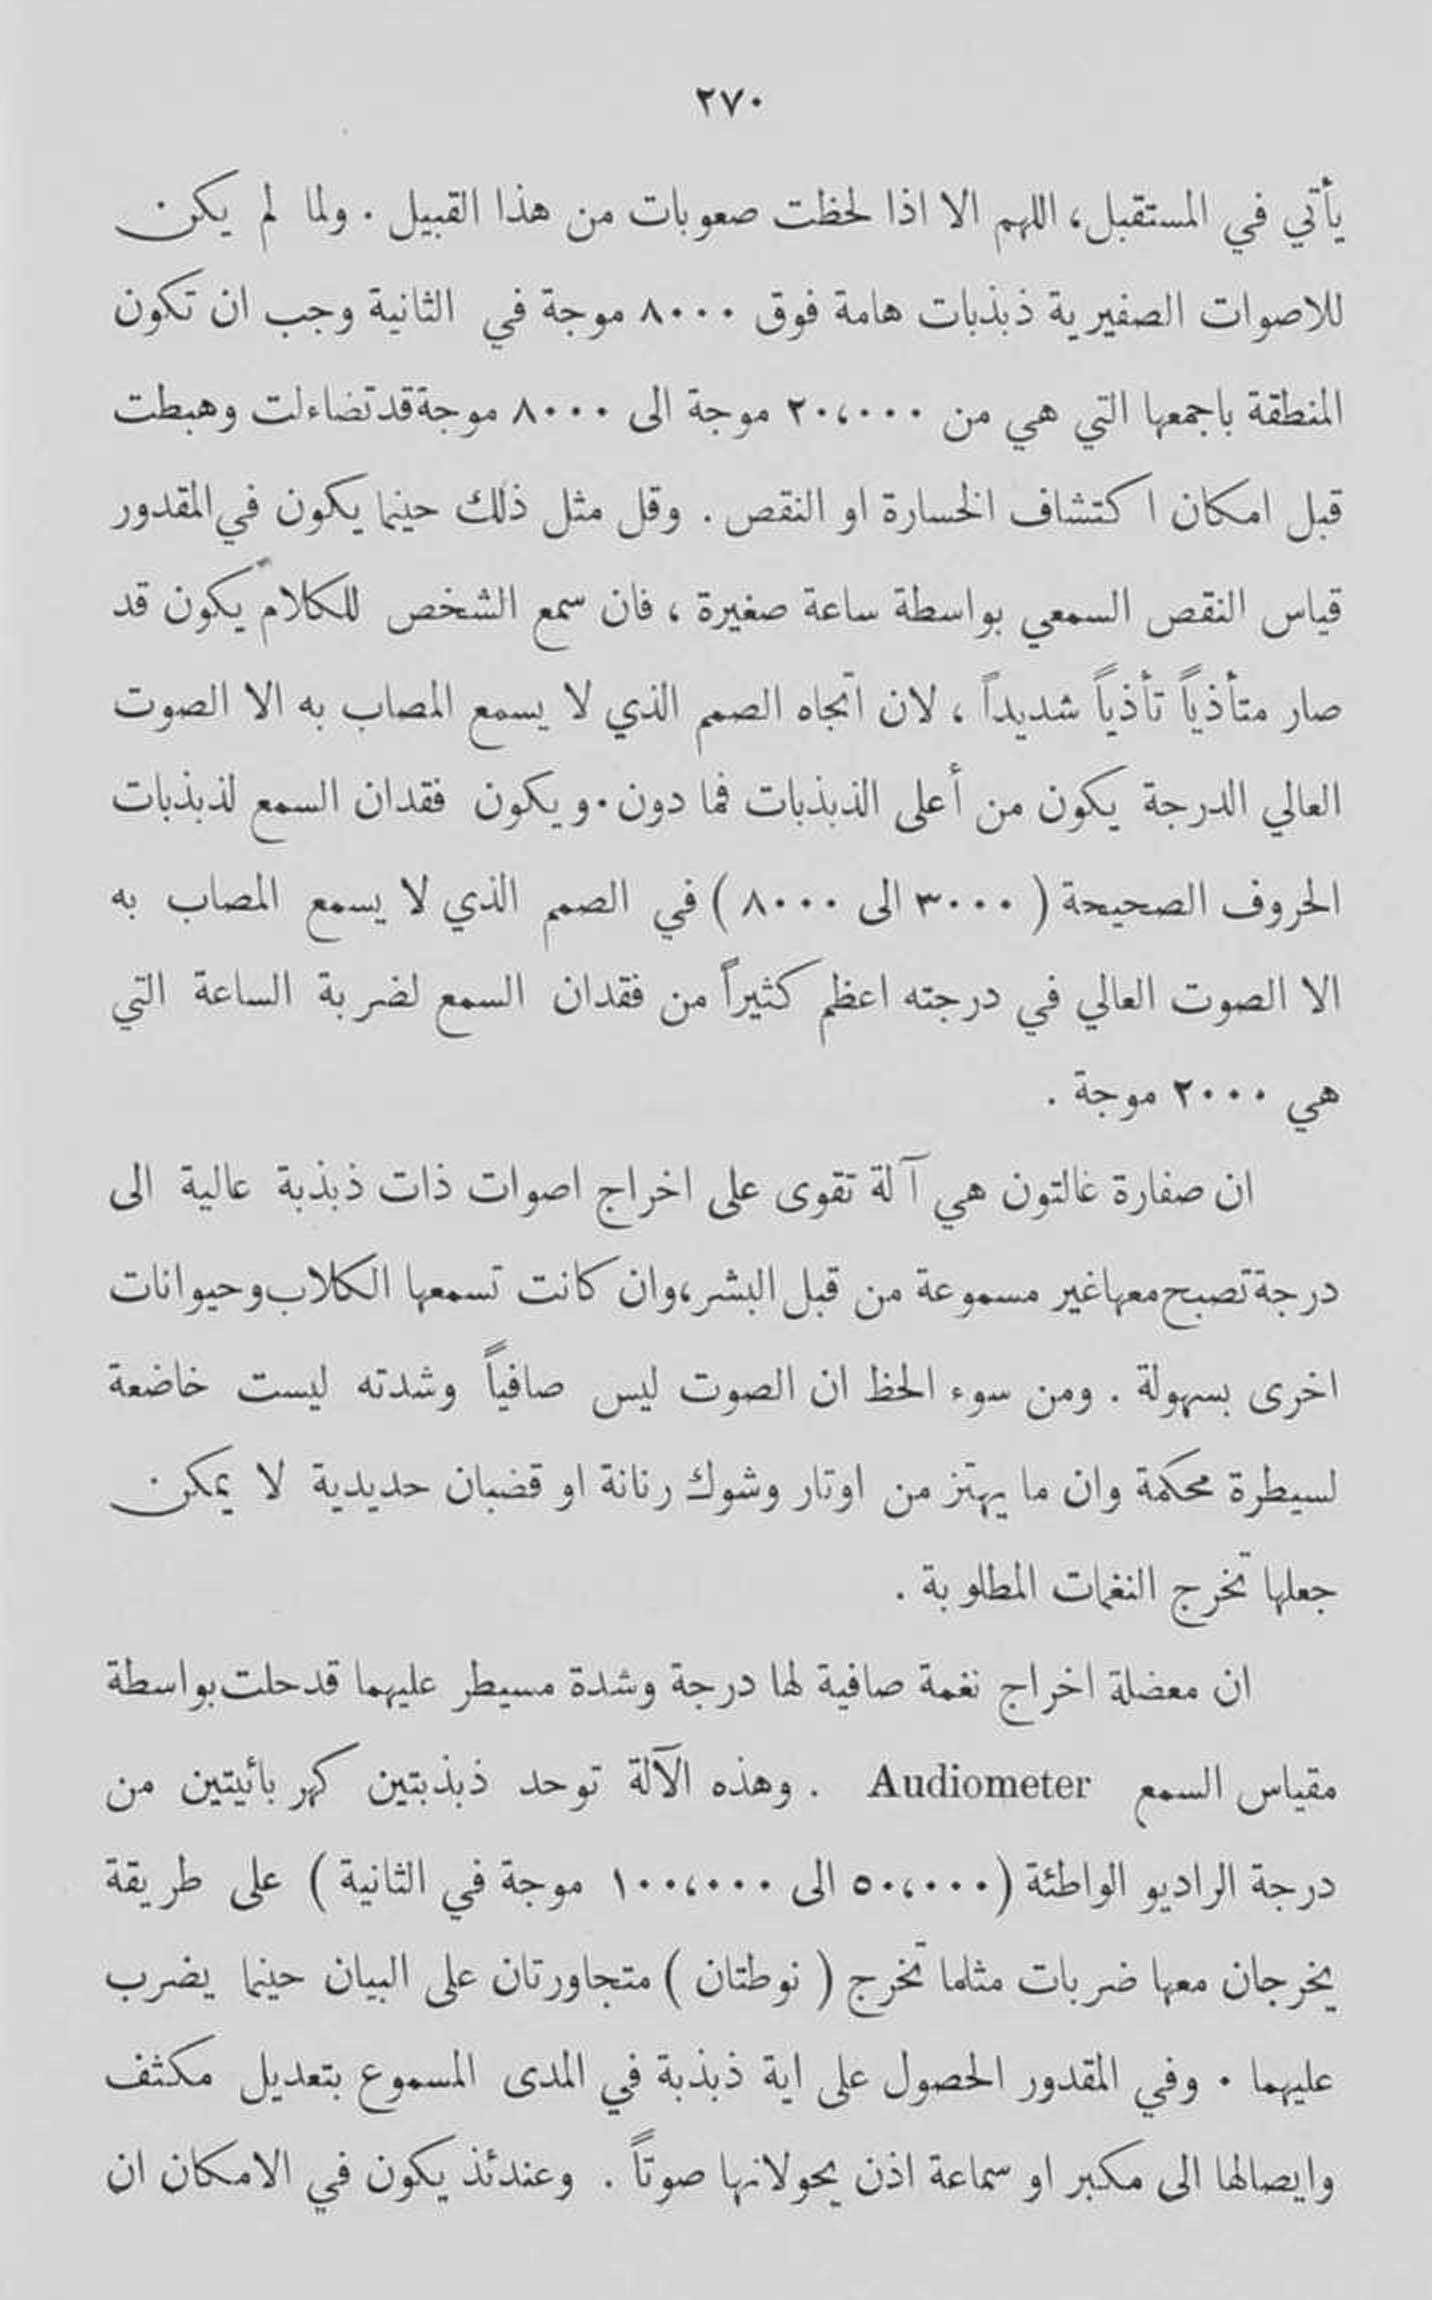 ٢٧٠
يأتي في المستقبل، اللهم الا اذا لحظت صعوبات من هذا القبيل . ولما لم يكن
للاصوات الصفيرية ذبذبات هامة فوق ٨٠٠٠ موجة في الثانية وجب ان تكون
المنطقة باجمعها التي هي من ٢٠،٠٠٠ موجة الى ٨٠٠٠ موجة قد تضاءلت وهبطت
قبل امكان اكتشاف الخسارة او النقص . وقل مثل ذلك حينما يكون في المقدور
قياس النقص السمعي بواسطة ساعة صغيرة ، فان سمع الشخص للكلام يكون قد
صار متأذياً تأذياً شديداً ، لان اتجاه الصمم الذي لا يسمع المصاب به الا الصوت
العالي الدرجة يكون من أعلى الذبذبات فما دون . ويكون فقدان السمع لذبذبات
الحروف الصحيحة ( ٣٠٠٠ الى ٨٠٠٠ ) في الصمم الذي لا يسمع المصاب به
الا الصوت العالي في درجته اعظم كثيراً من فقدان السمع لضربة الساعة التي
هي ٢٠٠٠ موجة .
ان صفارة غالتون هي آلة تقوى على اخراج اصوات ذات ذبذبة عالية الى
درجة تصبح معها غير مسموعة من قبل البشر، وان كانت تسمعها الكلاب وحيوانات
اخرى بسهولة . ومن سوء الحظ ان الصوت ليس صافياً وشدته ليست خاضعة
لسيطرة محكمة وان ما يهتز من اوتار وشوك رنانة او قضبان حديدية لا يمكن
جعلها تخرج النغمات المطلوبة .
ان معضلة اخراج نغمة صافية لها درجة وشدة مسيطر عليهما قد حلت بواسطة
مقياس السمع Audiometer . وهذه الآلة توحد ذبذبتين كهربائيتين من
درجة الراديو الواطئة (٥٠،٠٠٠ الى ١٠٠،٠٠٠ موجة في الثانية ) على طريقة
يخرجان معها ضربات مثلما تخرج ( نوطتان ) متجاورتان على البيان حينما يضرب
عليهما . وفي المقدور الحصول على اية ذبذبة في المدى المسموع بتعديل مكثف
وايصالها الى مكبر او سماعة اذن يحولانها صوتاً . وعندئذ يكون في الامكان ان